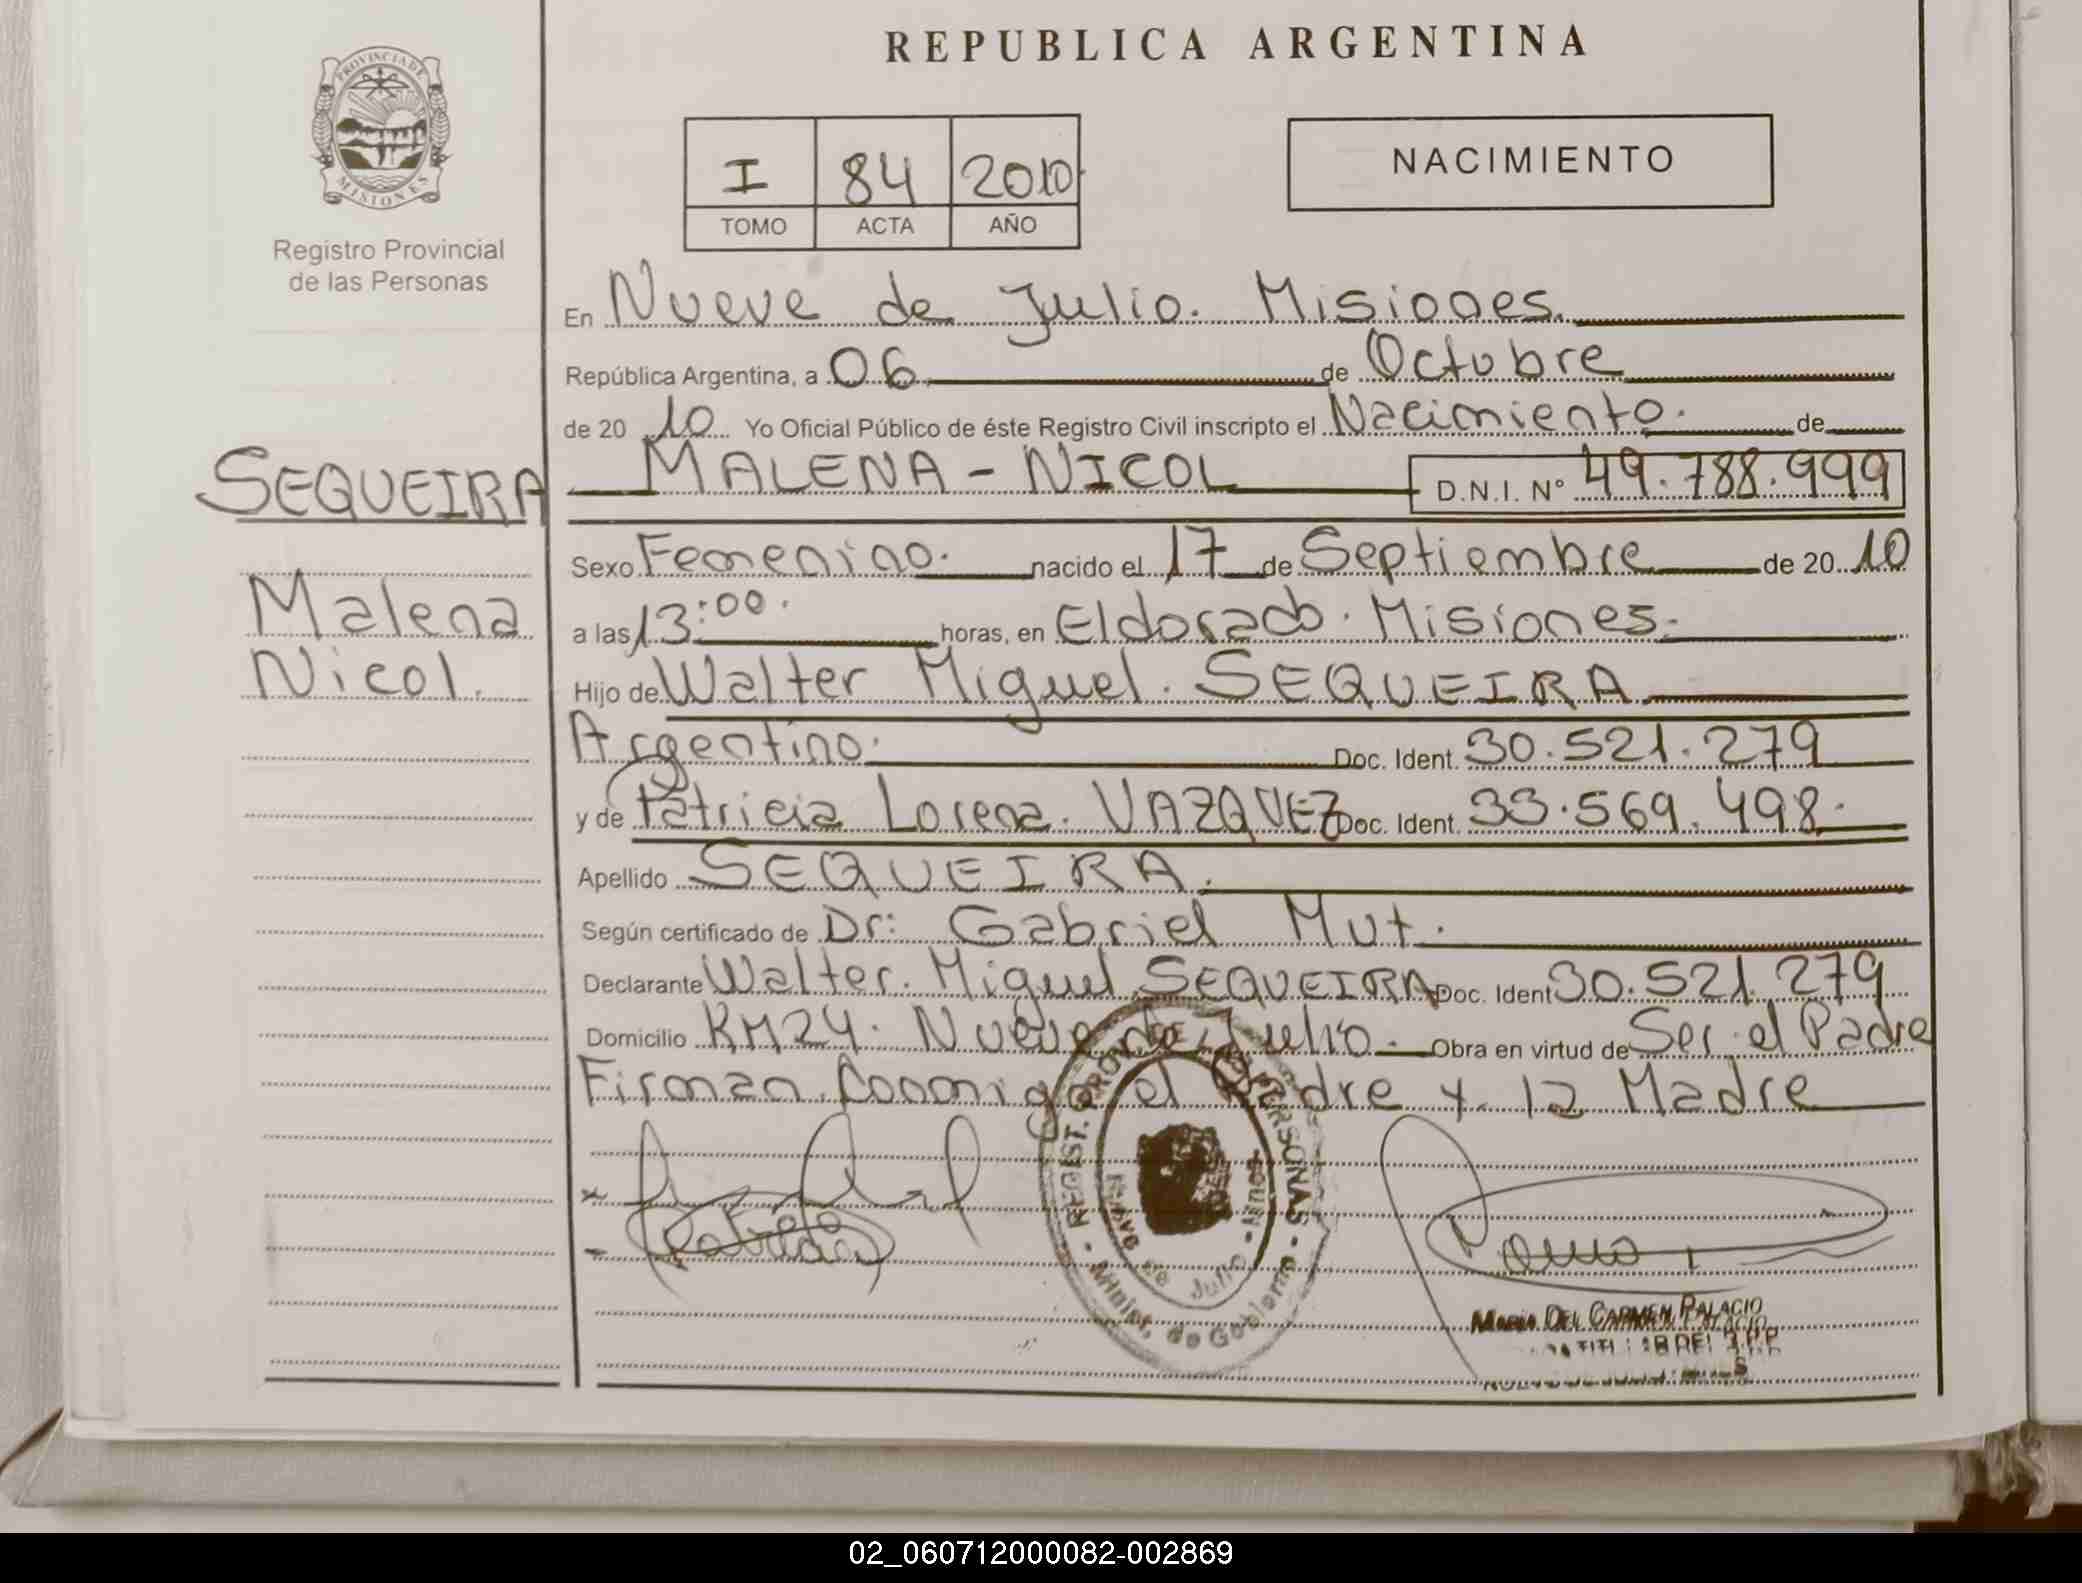 REPUBLICA ARGENTINA
PROVINCIA DE MISIONES
Registro Provincial
de las Personas
I 84 2010
TOMO ACTA AÑO
NACIMIENTO
En Nueve de Julio. Misiones.
República Argentina, a 06 de Octubre
de 20 10 Yo Oficial Público de éste Registro Civil inscripto el Nacimiento. de
SEQUEIRA
Malena
Nicol.
MALENA - NICOL D.N.I. Nº 49.788.999
Sexo Femenino. nacido el 17 de Septiembre de 20 10
a las 13:00. horas, en Eldorado. Misiones.
Hijo de Walter Miguel. SEQUEIRA
Argentino. Doc. Ident. 30.521.279
y de Patricia Lorena. VAZQUEZ Doc. Ident. 33.569.498.
Apellido SEQUEIRA.
Según certificado de Dr: Gabriel Mut.
Declarante Walter. Miguel SEQUEIRA Doc. Ident 30.521.279
Domicilio KM24. Nueve de Julio. Obra en virtud de Ser el Padre
Firman Conmigo el Padre y la Madre
REGIST. PROV. DE LAS PERSONAS - Minist. de Gobierno
Nueve de Julio - Mnes
MARIA DEL CARMEN PALACIO
02_060712000082-002869